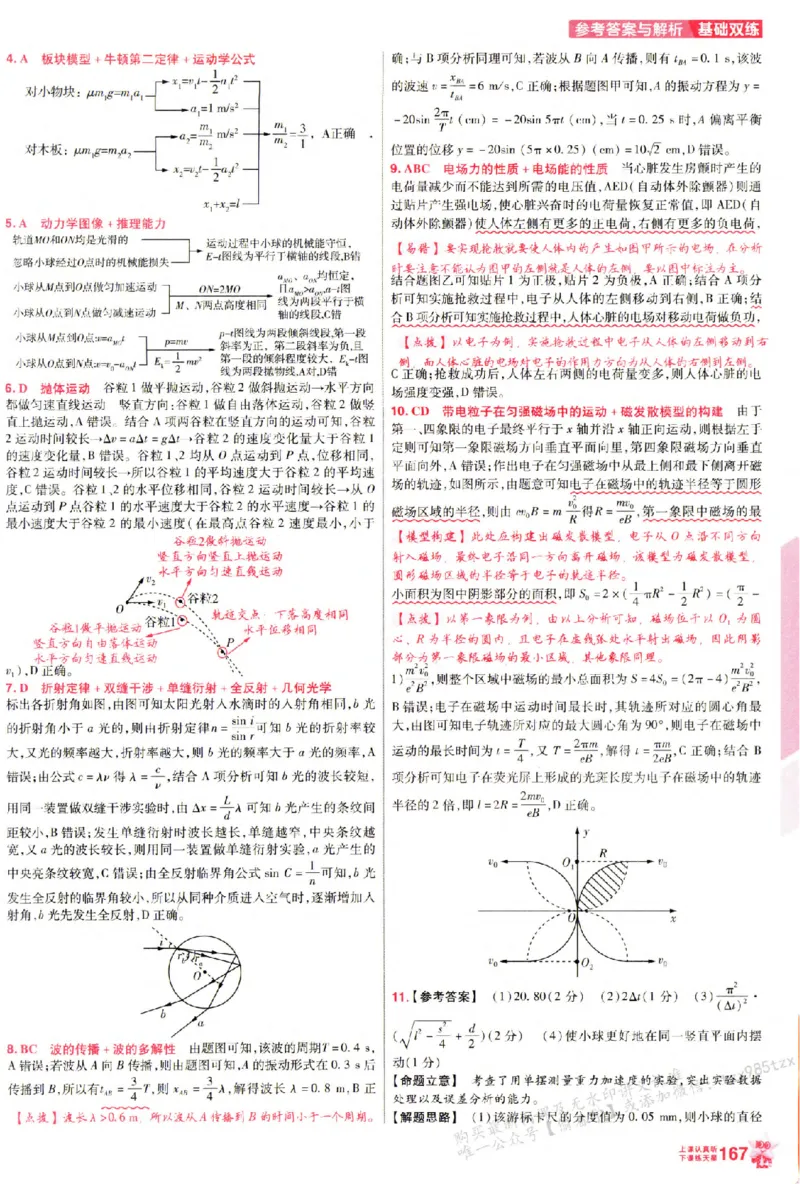 参考答案与解析 基础双练
4.A 板块模型+牛顿第二定律+运动学公式
对小物块：μm₁g=m₁a₁
x₁=v₁t-1/2a₁t²
a₁=1 m/s²
对木板：μm₁g=m₂a₂
a₂=m₁/m₂ m/s²
x₂=v₂t-1/2a₂t²
x₁+x₂=l
m₁/m₂=3/1，A正确
5.A 动力学图像+推理能力
轨道MO和ON均是光滑的
忽略小球经过O点时的机械能损失
运动过程中小球的机械能守恒，
E-t图线为平行于横轴的线段,B错
小球从M点到O点做匀加速运动
小球从O点到N点做匀减速运动
ON=2MO
M、N两点高度相同
a_MO、a_ON均恒定，
且a_MO>a_ON,a-t图
线为两段平行于横
轴的线段,C错
小球从M点到O点v=a_MO t
小球从O点到N点v=v₀-a_ON t
p=mv
E_k=1/2mv²
p-t图线为两段倾斜线段,第一段
斜率为正、第二段斜率为负,且
第一段的倾斜程度较大、E_k-t图
线为两段抛物线,A对,D错
6.D 抛体运动 谷粒1做平抛运动,谷粒2做斜抛运动→水平方向
都做匀速直线运动 竖直方向:谷粒1做自由落体运动,谷粒2做竖
直上抛运动,A错误。结合A项两谷粒在竖直方向的运动可知,谷粒
2运动时间较长→Δv=aΔt=gΔt→谷粒2的速度变化量大于谷粒1
的速度变化量,B错误。谷粒1、2均从O点运动到P点,位移相同,
谷粒2运动时间较长→所以谷粒1的平均速度大于谷粒2的平均速
度,C错误。谷粒1、2的水平位移相同,谷粒2运动时间较长→从O
点运动到P点谷粒1的水平速度大于谷粒2的水平速度→谷粒1的
最小速度大于谷粒2的最小速度(在最高点谷粒2速度最小,小于
谷粒2做斜抛运动
竖直方向竖直上抛运动
水平方向匀速直线运动
v₂
O
v₁
谷粒2
谷粒1
轨迹交点：下落高度相同
水平位移相同
谷粒1做平抛运动
竖直方向自由落体运动
水平方向匀速直线运动
P
v₁),D正确。
7.D 折射定律+双缝干涉+单缝衍射+全反射+几何光学
标出各折射角如图,由图可知太阳光射入水滴时的入射角相同,b光
的折射角小于a光的,则由折射定律n=sin i/sin r可知b光的折射率较
大,又光的频率越大,折射率越大,则b光的频率大于a光的频率,A
错误;由公式c=λν得λ=c/ν,结合A项分析可知b光的波长较短,
用同一装置做双缝干涉实验时,由Δx=L/dλ可知b光产生的条纹间
距较小,B错误;发生单缝衍射时波长越长,单缝越窄,中央条纹越
宽,又a光的波长较长,则用同一装置做单缝衍射实验,a光产生的
中央亮条纹较宽,C错误;由全反射临界角公式sin C=1/n可知,b光
发生全反射的临界角较小,所以从同种介质进入空气时,逐渐增加入
射角,b光先发生全反射,D正确。
i
r_b
r_a
O
b
a
8.BC 波的传播+波的多解性 由题图可知,该波的周期T=0.4 s,
A错误;若波从A向B传播,则由题图可知,A的振动形式在0.3 s后
传播到B,所以有t_AB=3/4T,则x_AB=3/4λ,解得波长λ=0.8 m,B正
【点拨】波长λ>0.6 m，所以波从A传播到B的时间小于一个周期。
确;与B项分析同理可知,若波从B向A传播,则有t_BA=0.1 s,该波
的波速v=x_BA/t_BA=6 m/s,C正确;根据题图甲可知,A的振动方程为y=
-20sin 2π/T t (cm)=-20sin 5πt (cm),当t=0.25 s时,A偏离平衡
位置的位移y=-20sin (5π×0.25) (cm)=10√2 cm,D错误。
9.ABC 电场力的性质+电场能的性质 当心脏发生房颤时产生的
电荷量减少而不能达到所需的电压值,AED(自动体外除颤器)则通
过贴片产生强电场,使心脏兴奋时的电荷量恢复正常值,即AED(自
动体外除颤器)使人体左侧有更多的正电荷,右侧有更多的负电荷,
【易错】要实现抢救就要使人体内的产生如图甲所示的电场，在分析
时要注意不能认为图甲的左侧就是人体的左侧，要以图中标注为主。
结合题图乙可知贴片1为正极,贴片2为负极,A正确;结合A项分
析可知实施抢救过程中,电子从人体的左侧移动到右侧,B正确;结
合B项分析可知实施抢救过程中,人体心脏的电场对移动电荷做负功,
【点拨】以电子为例，实施抢救过程中电子从人体的左侧移动到右
侧，而人体心脏的电场对电子的作用力方向为从人体的右侧到左侧。
C正确;抢救成功后,人体左右两侧的电荷量变多,则人体心脏的电
场强度变强,D错误。
10.CD 带电粒子在匀强磁场中的运动+磁发散模型的构建 由于
第一、四象限的电子最终平行于x轴并沿x轴正向运动,则根据左手
定则可知第一象限磁场方向垂直平面向里,第四象限磁场方向垂直
平面向外,A错误;作出电子在匀强磁场中从最上侧和最下侧离开磁
场的轨迹,如图所示,由题意可知电子在磁场中的轨迹半径等于圆形
磁场区域的半径,则由ev₀B=m v₀²/R得R=mv₀/eB,第一象限中磁场的最
【模型构建】此处应构建出磁发散模型，电子从O点沿不同方向
射入磁场，最终电子沿同一方向离开磁场，该模型为磁发散模型，
圆形磁场区域的半径等于电子的轨迹半径。
小面积为图中阴影部分的面积,即S₀=2×(1/4πR²-1/2R²)=(π/2-
【点拨】以第一象限为例，由以上分析可知，磁场位于以O₁为圆
心、R为半径的圆内，且电子在虚线弧处水平射出磁场，因此阴影
部分为第一象限磁场的最小区域，其他象限同理。
1)m²v₀²/e²B²,则整个区域中磁场的最小总面积为S=4S₀=(2π-4)m²v₀²/e²B²,
B错误;电子在磁场中运动时间最长时,其轨迹所对应的圆心角最
大,由图可知电子轨迹所对应的最大圆心角为90°,则电子在磁场中
运动的最长时间为t=T/4,又T=2πm/eB,解得t=πm/2eB,C正确;结合B
项分析可知电子在荧光屏上形成的光斑长度为电子在磁场中的轨迹
半径的2倍,即l=2R=2mv₀/eB,D正确。
y
v₀
O₁
R
v₀
O
x
v₀
O₂
v₀
11.【参考答案】 (1)20.80(2分) (2)2Δt(1分) (3)π²/(Δt)²·
(√(l²-s²/4)+d/2)(2分) (4)使小球更好地在同一竖直平面内摆
动(1分)
【命题立意】 考查了用单摆测量重力加速度的实验,突出实验数据
处理以及误差分析的能力。
【解题思路】 (1)该游标卡尺的分度值为0.05 mm,则小球的直径
上课认真听
下课练天星
167